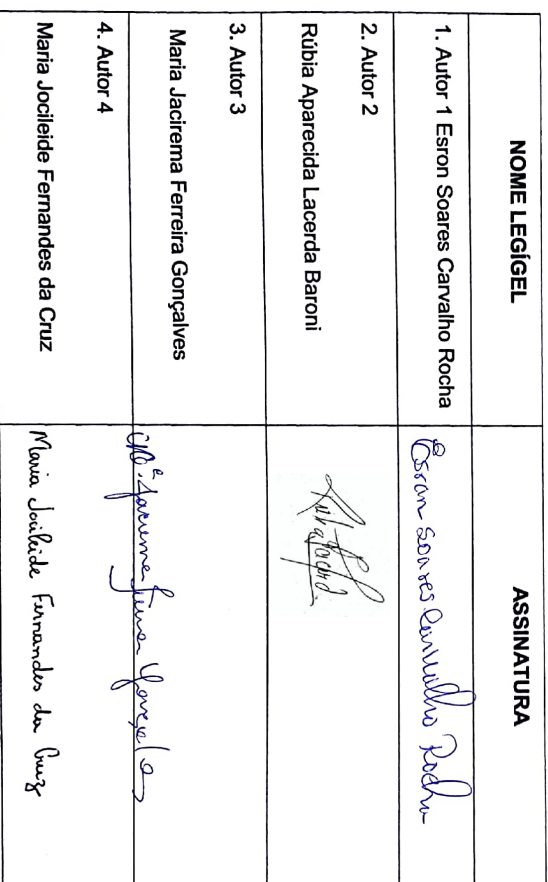 NOME LEGÍGEL ASSINATURA
1. Autor 1 Esron Soares Carvalho Rocha Esron Soares Carvalho Rocha
2. Autor 2
Rúbia Aparecida Lacerda Baroni Rubia Lacerda
3. Autor 3
Maria Jacirema Ferreira Gonçalves Mª Jacirema Ferreira Gonçalves
4. Autor 4
Maria Jocileide Fernandes da Cruz Maria Jocileide Fernandes da Cruz